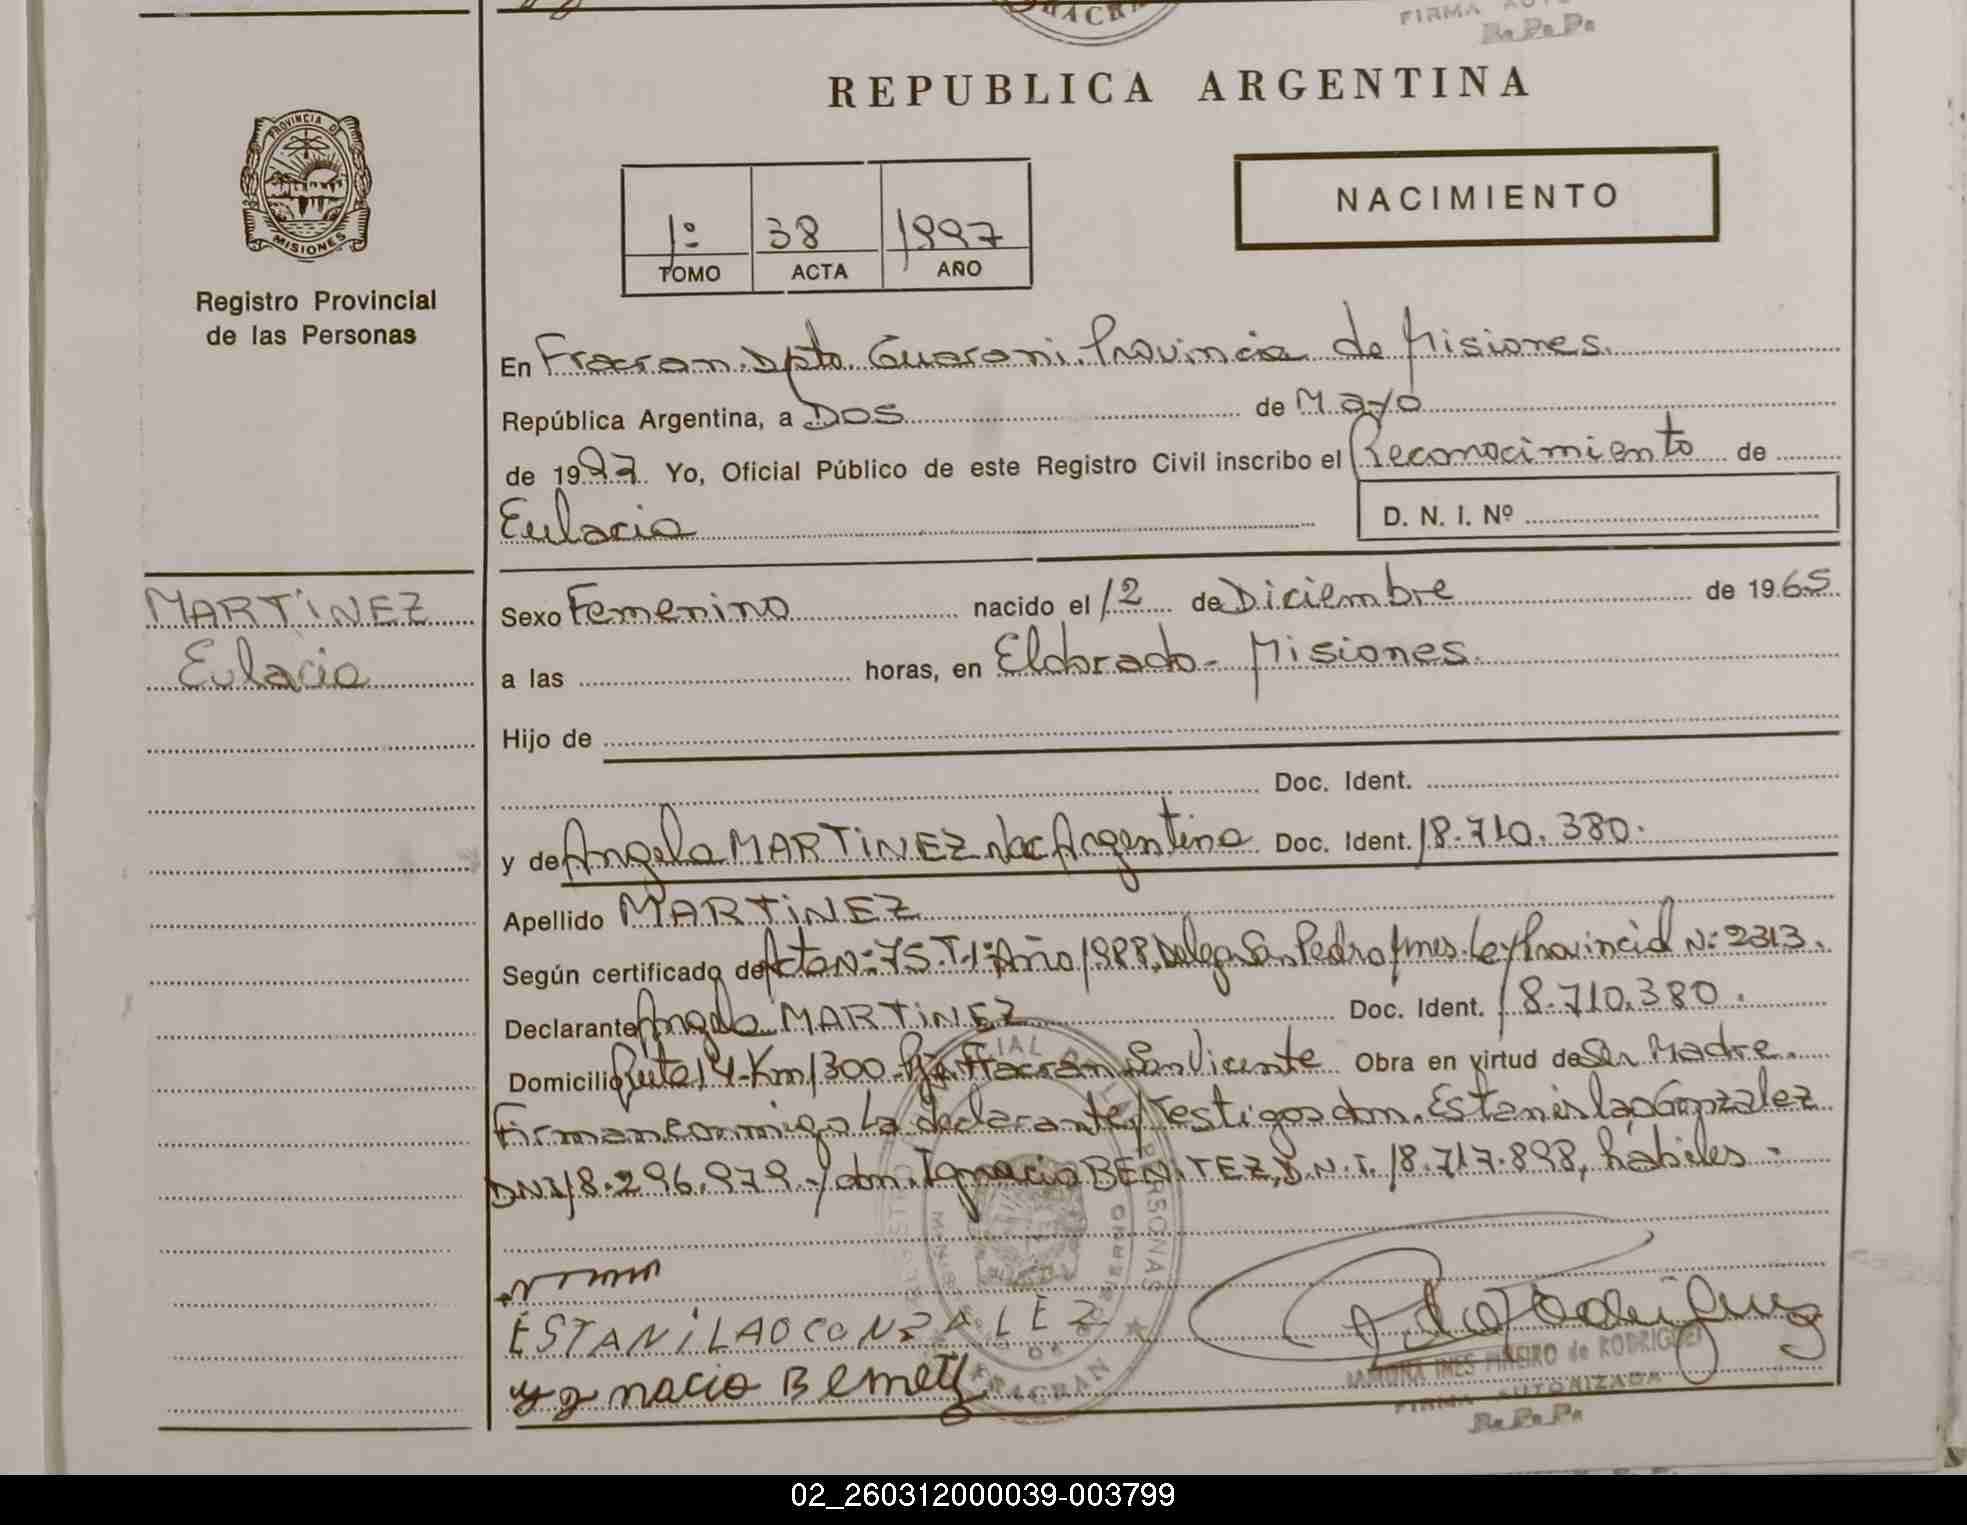 FRACRAN
FIRMA AUTO
R.P.P.
REPUBLICA ARGENTINA
PROVINCIA DE
MISIONES
Registro Provincial
de las Personas
NACIMIENTO
1º 38 1997
TOMO ACTA AÑO
En Fracran. Dpto. Guarani. Provincia de Misiones.
República Argentina, a DOS de Mayo
de 1997. Yo, Oficial Público de este Registro Civil inscribo el Reconocimiento de
Eulacia
D. N. I. Nº
MARTINEZ
Eulacia
Sexo Femenino nacido el 12 de Diciembre de 1965
a las horas, en Eldorado - Misiones.
Hijo de
Doc. Ident.
y de Angela MARTINEZ Nac Argentina Doc. Ident. 18.710.380.
Apellido MARTINEZ
Según certificado de Acta Nº 75. T.1º Año 1988. Delega. San Pedro Mnes. Ley Provincial Nº 2313.
Declarante Angela MARTINEZ Doc. Ident. 18.710.380.
Domicilio Ruta 14 Km 1300 Fracran San Vicente Obra en virtud de Ser Madre.
Firman conmigo La declarante y testigos don. Estanislao Gonzalez
DNI 18.296.979.- y don. Ignacio BENITEZ, D.N.I. 18.717.898, hábiles -
ESTANiLAO CONZALEZ
yg nacio Bemetz
FRACRAN
RAMONA INES PIÑEIRO de RODRIGUEZ
FIRMA AUTORIZADA
R.P.P.
02_260312000039-003799